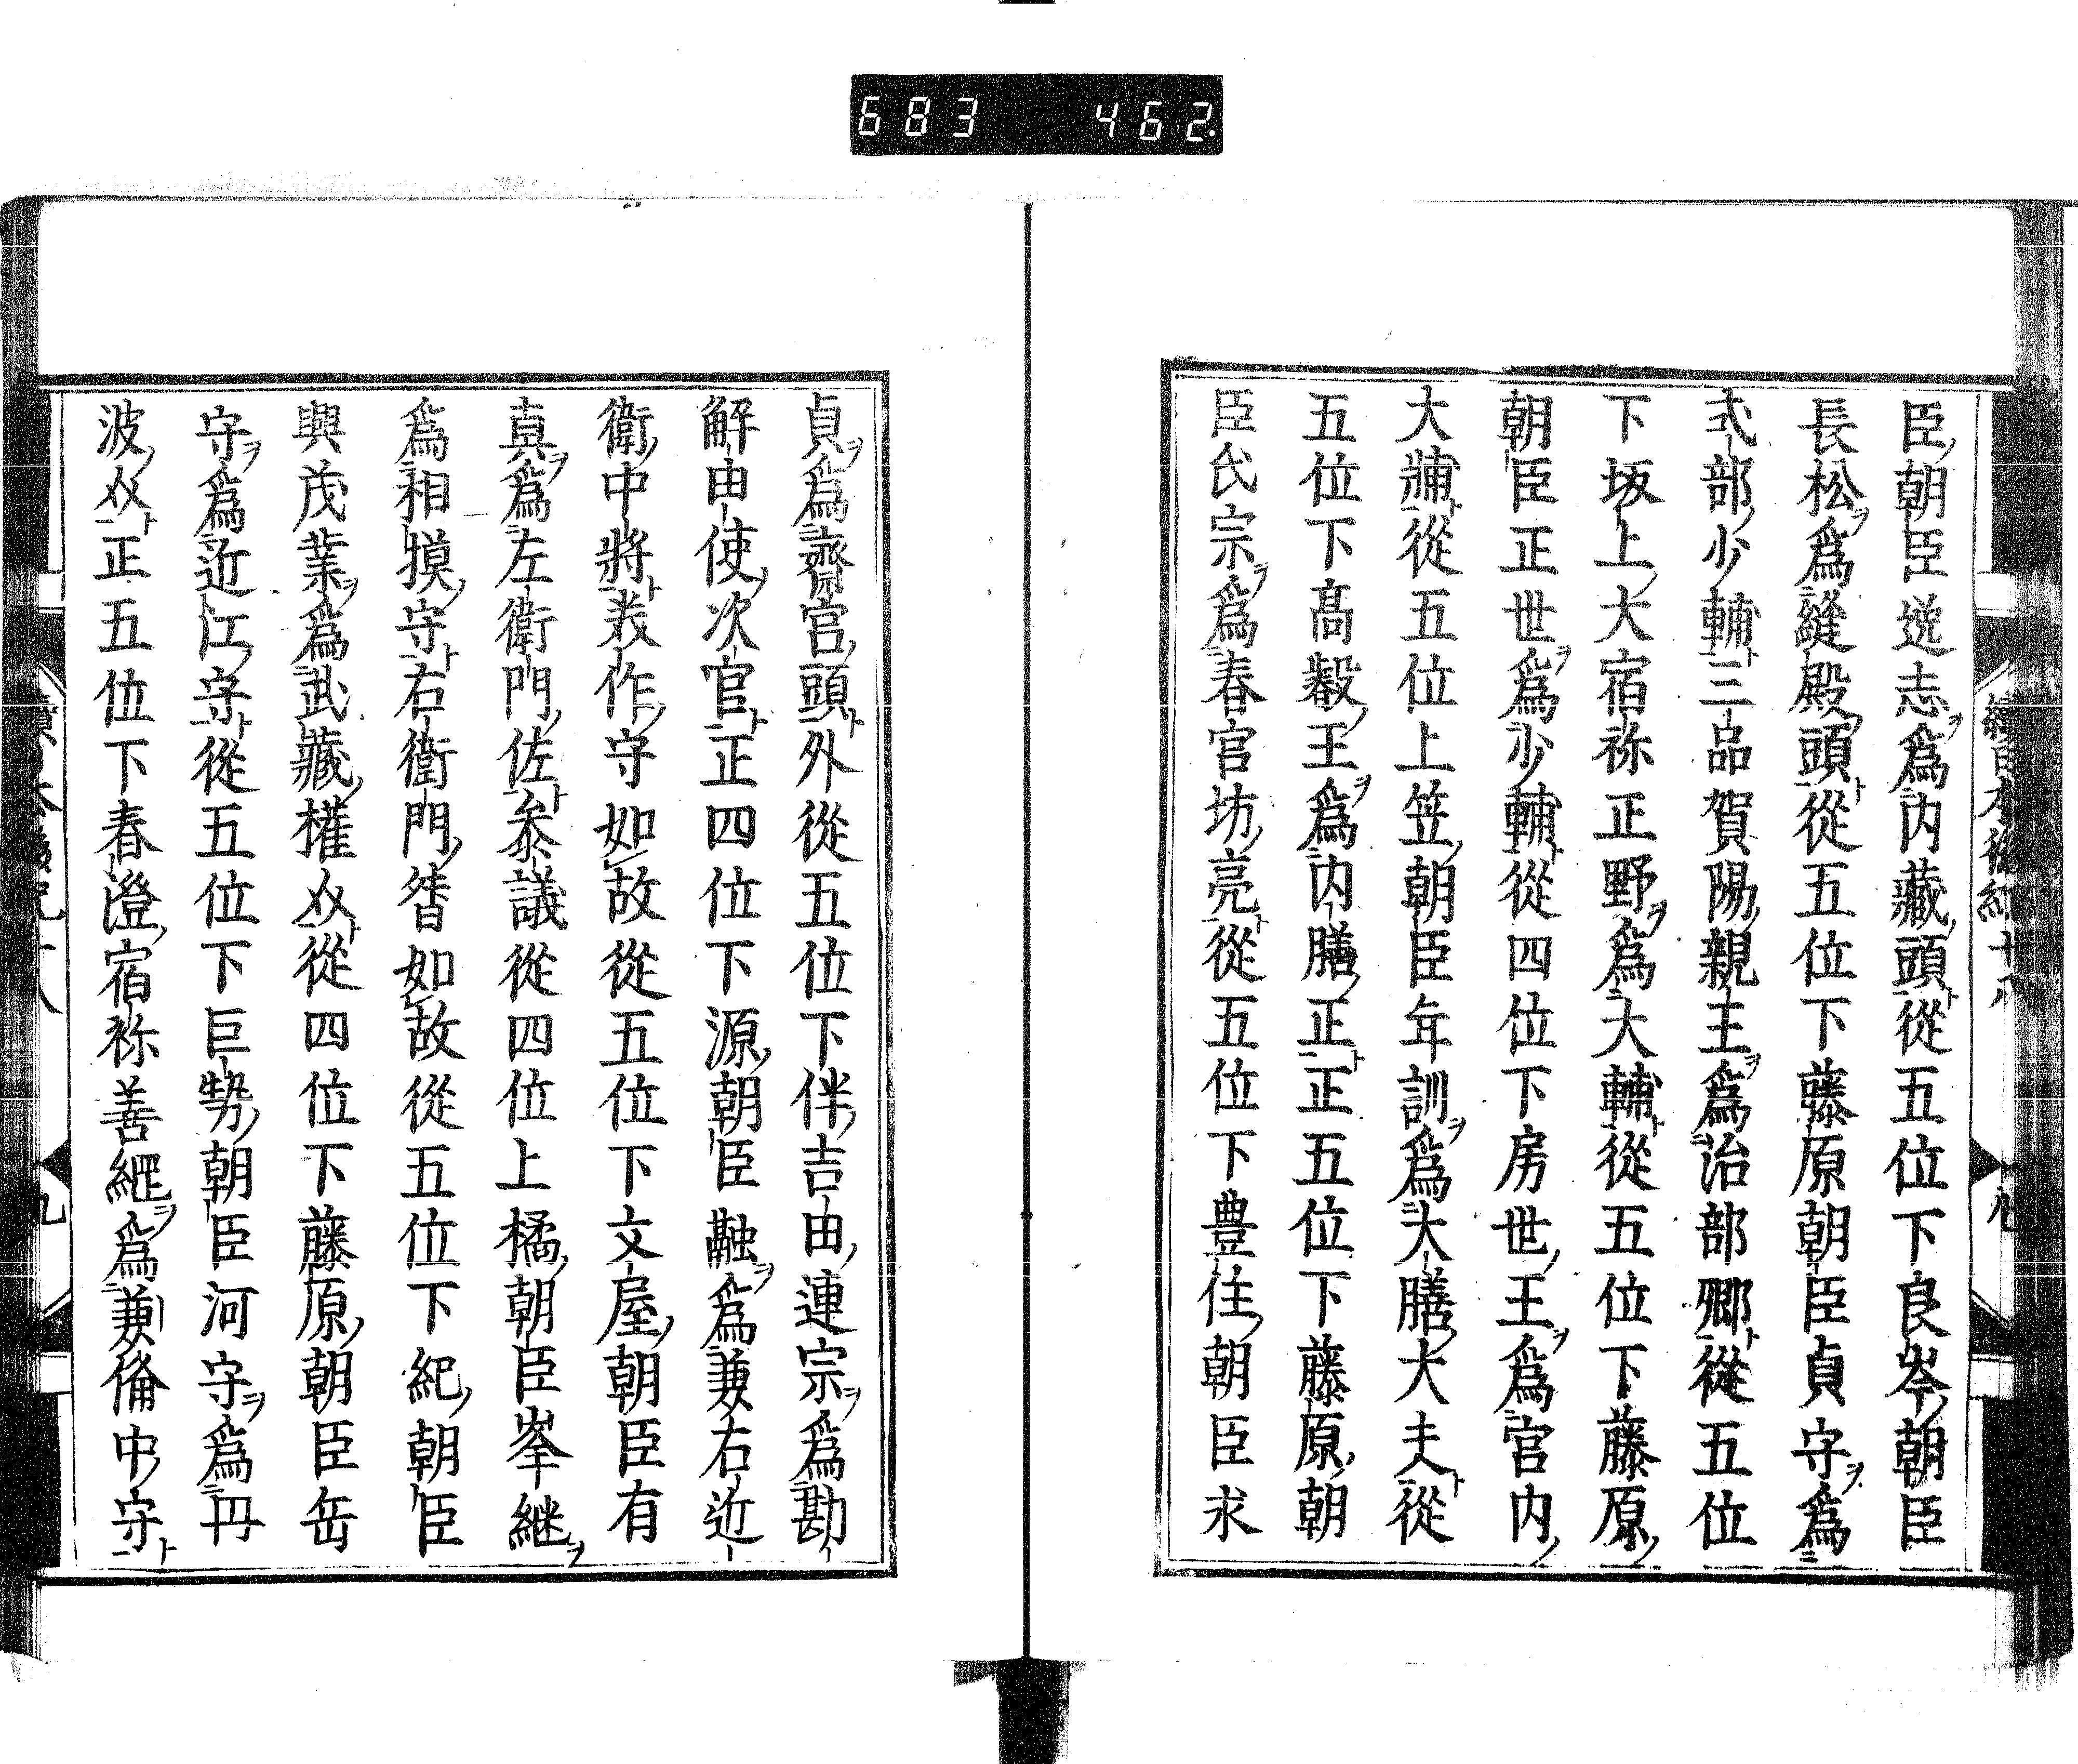 683 462
臣朝臣逸志爲内藏頭從五位下良岑朝臣
長松爲縫殿頭從五位下藤原朝臣貞守爲
式部少輔三品賀陽親王爲治部卿從五位
下坂上大宿祢正野爲大輔從五位下藤原
朝臣正世爲少輔從四位下房世王爲宮内
大輔從五位上笠朝臣年訓爲大膳大夫從
五位下髙縠王爲内膳正正五位下藤原朝
臣氏宗爲春宮坊亮從五位下豊住朝臣求
貞爲齋宮頭外從五位下伴吉由連宗爲勘
解由使次官正四位下源朝臣融爲兼右近
衛中將美作守如故從五位下文屋朝臣有
真爲左衛門佐叅議從四位上橘朝臣岑継
爲相摸守右衛門督如故從五位下紀朝臣
興茂業爲武藏權介從四位下藤原朝臣岳
守爲近江守從五位下巨勢朝臣河守爲丹
波介正五位下春澄宿祢善繩爲兼備中守
續日本後紀十八
九